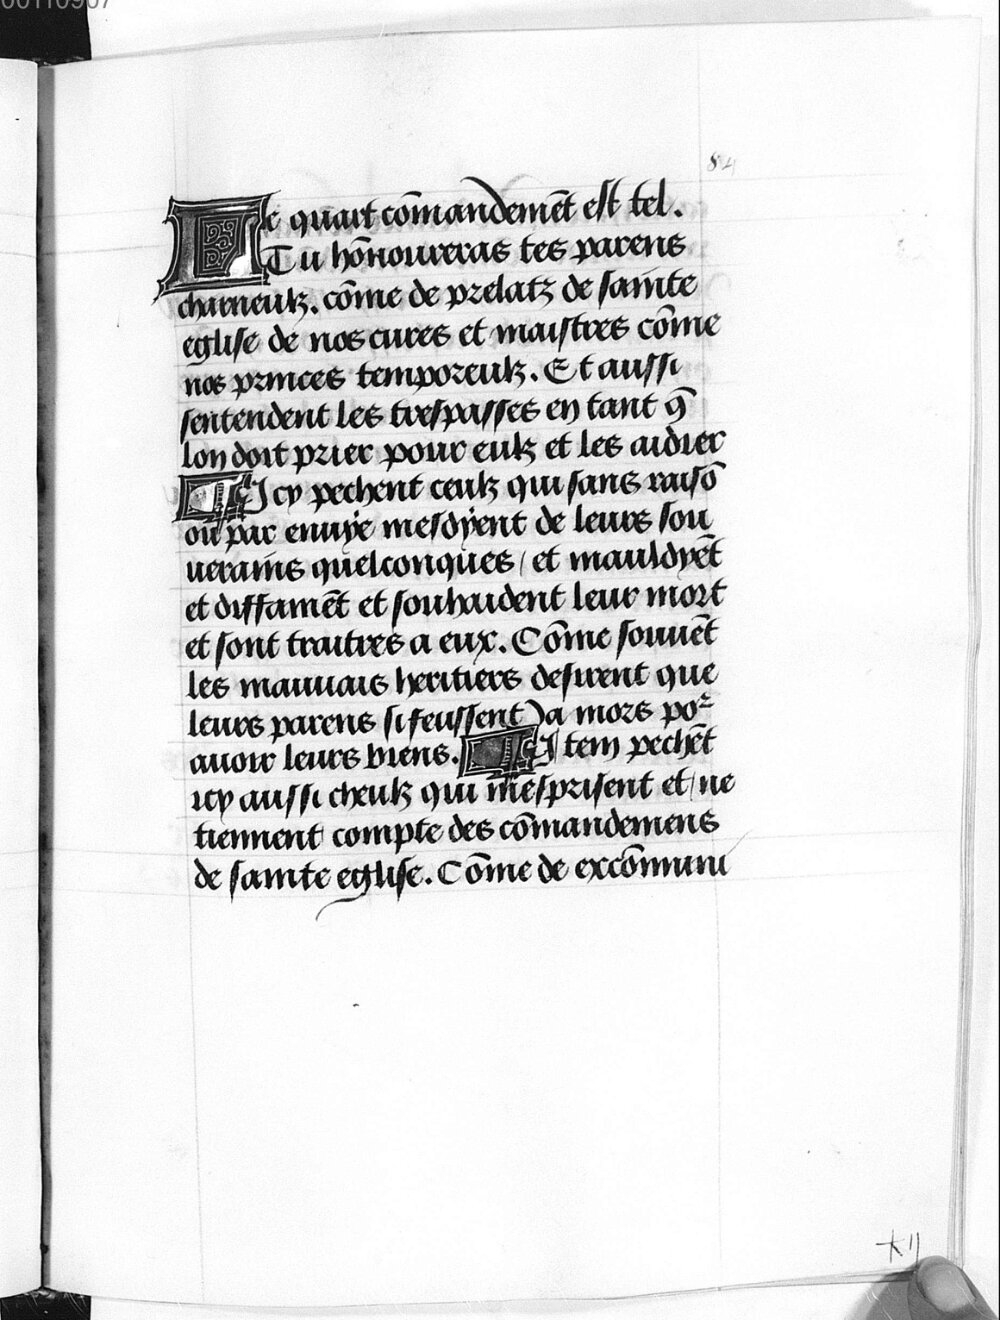 84
Le quart cōmandemēt est tel.
Tu hōnoureras tes parens
charneulz. cōme de prelatz de sainte
eglise de nos cures et maistres cōme
nos princes temporeulz. Et aussi
sentendent les trespasses en tant q̄
lon doit prier pour eulz et les aidier
Icy pechent ceulz qui sans raisō
ou par enuye mesdyent de leurs sou
uerains quelconques / et mauldyēt
et diffamēt et souhaident leur mort
et sont traitres a eux. Cōme souuēt
les mauuais heritiers desirent que
leurs parens si feussent Ja mors poᷣ
auoir leurs biens. Item pechēt
icy aussi cheulz qui mesprisent et / ne
tiennent compte des cōmandemens
de sainte eglise. Cōme de excōmuni